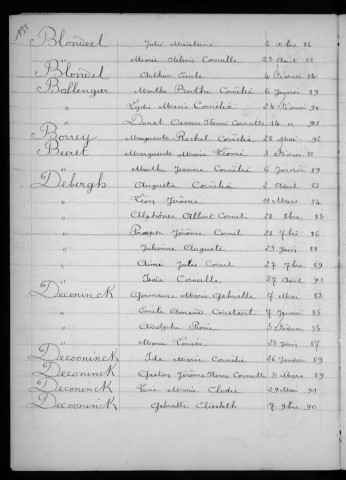 Blondeel Julie Madeleine 2 Xbre 86
" Marie Hélène Corneille 23 Août 88
Blondel Arthur Emile 4 Février 84
Bollengier Marthe Berthe Cornélia 6 Janvier 89
" Lydie Marie Cornélia 24 Février 90
" Donat Oscar Henri Corneille 14 " 91
Borrey Marguerite Rachel Cornélia 28 Mai 92
Buret Marguerite Marie Léonie 8 Février
" Marthe Jeanne Cornélia 6 Janvier 89
Debergh Augusta Cornélia 2 Août 83
" Léon Jérôme 11 Mars 84
" Alphonse Albert Cornil 28 8bre 85
" Prosper Jérôme Cornil 28 7bre 86
" Julienne Augusta 23 Juin 88
" Aimé Jules Cornil 27 7bre 89
" Corneille 27 Août 91
Deconinck Germaine Marie Gabrielle 7 Mai 83
" Emile Amand Constant 7 Janvier 85
" Adolphe Pierre 5 Février 85
" Marie Louise 23 Juin 87
Decooninck Ida Marie Cornélia 26 Janvier 89
Deconinck Gaston Jérôme Henri Corneille 5 Mars 89
Deconinck Marie Elodie 29 Mai 91
Decooninck Gabrielle Elisabeth 7 9bre 90